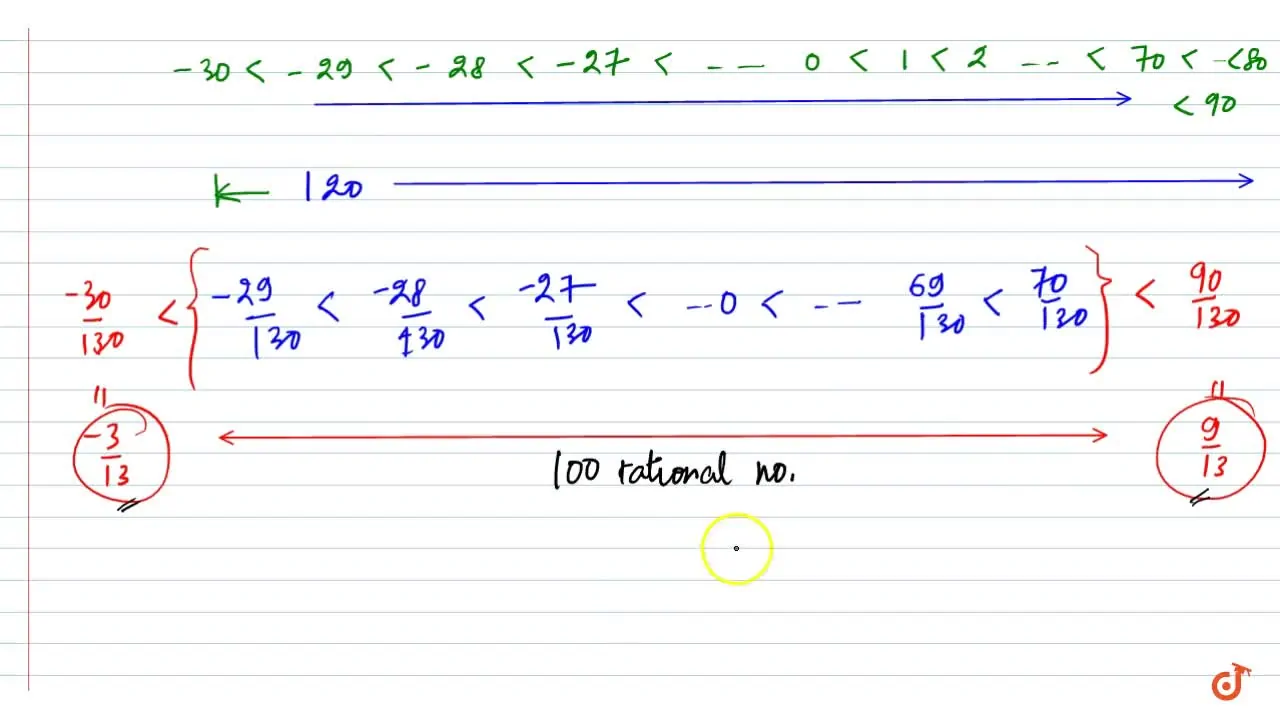 -30 < -29 < -28 < -27 < -- — 0 < 1 < 2 -- - < 70 < -<80
< 90
120
-30/130 < { -29/130 < -28/130 < -27/130 < --0 < -- — 69/130 < 70/130 } < 90/130
-3/13 9/13
100 rational no.